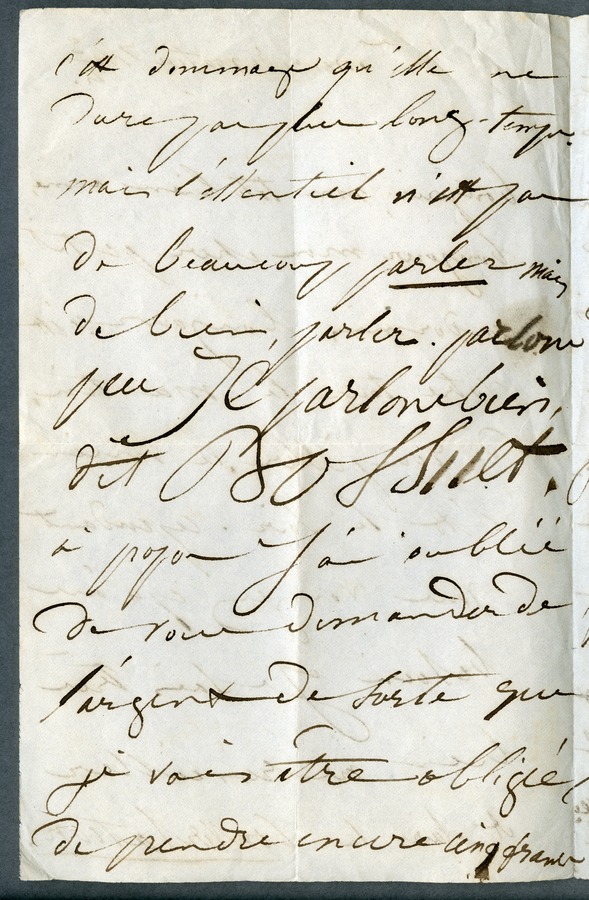 c'est dommage qu'elle ne
dure pas plus long-temps.
mais l'essentiel n'est pas
de beaucoup parler mais
de bien parler. parlons
peu & parlons bien,
dit Bossuet.
à propos j'ai oublié
de vous demander de
l'argent de sorte que
je vais être obligé,
de prendre encore cinq francs